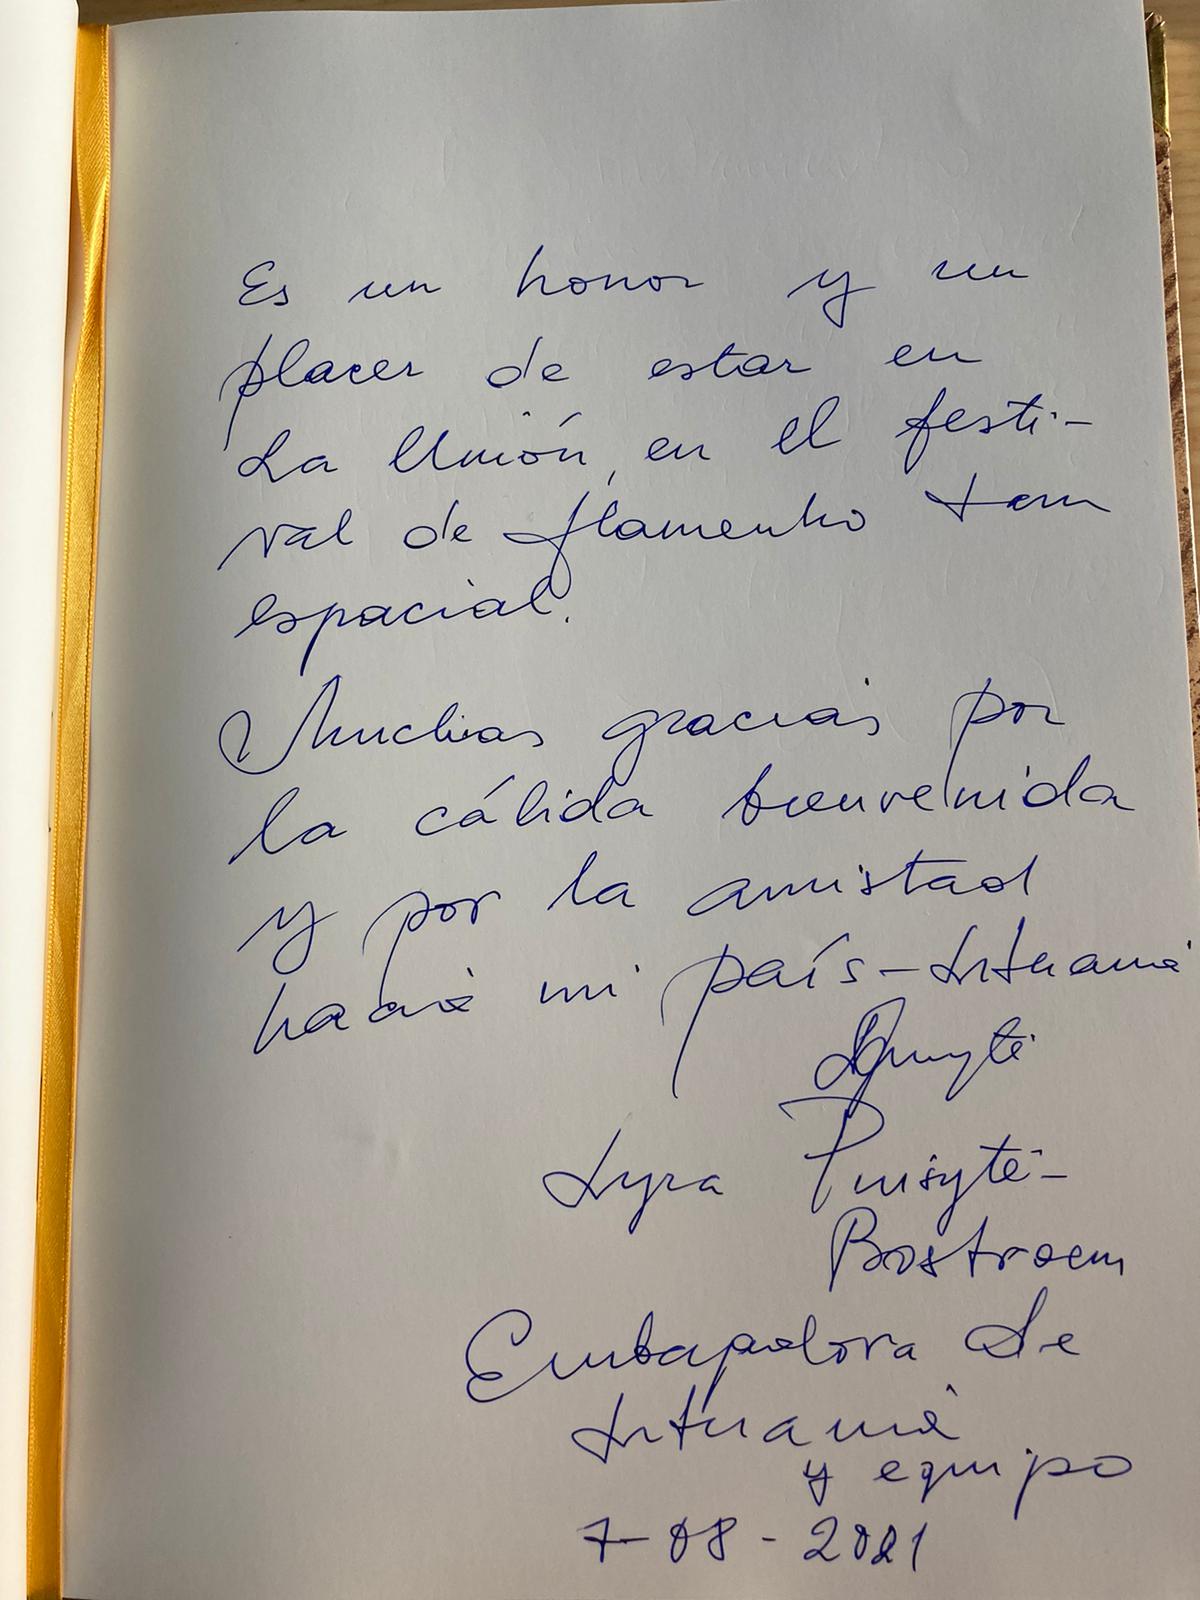 Es un honor y un
placer de estar en
La Unión, en el festi-
val de flamenko tan
espacial.
Muchas gracias por
la cálida bienvenida
y por la amistad
hacia mi país-Lituania
Lyra Puišytė-
Bostroem
Embajadora de
Lituania
y equipo
7-08-2021